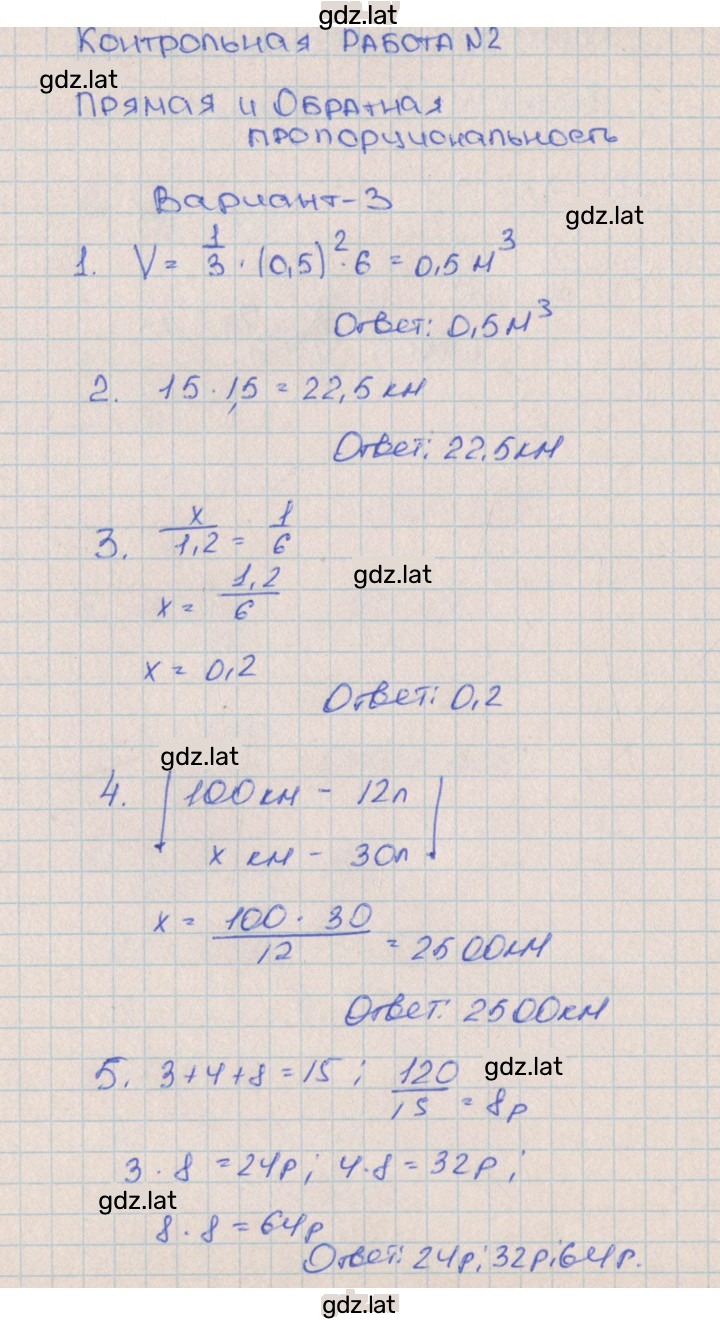 gdz.lat
Контрольная работа N2
gdz.lat
Прямая и Обратная
пропорциональность
Вариант-3
gdz.lat
1. V = 1/3 · (0,5)² · 6 = 0,5 м³
Ответ: 0,5 м³
2. 15 · 1,5 = 22,5 км
Ответ: 22,5 км
3. x/1,2 = 1/6
gdz.lat
x = 1,2/6
x = 0,2
Ответ: 0,2
gdz.lat
4. 100 км - 12л
x км - 30л
x = 100 · 30/12 = 2500 км
Ответ: 2500 км
5. 3+4+8=15; 120/15 = 8р
gdz.lat
3 · 8 = 24р; 4·8 = 32р;
gdz.lat
8 · 8 = 64р
Ответ: 24р; 32р; 64р.
gdz.lat